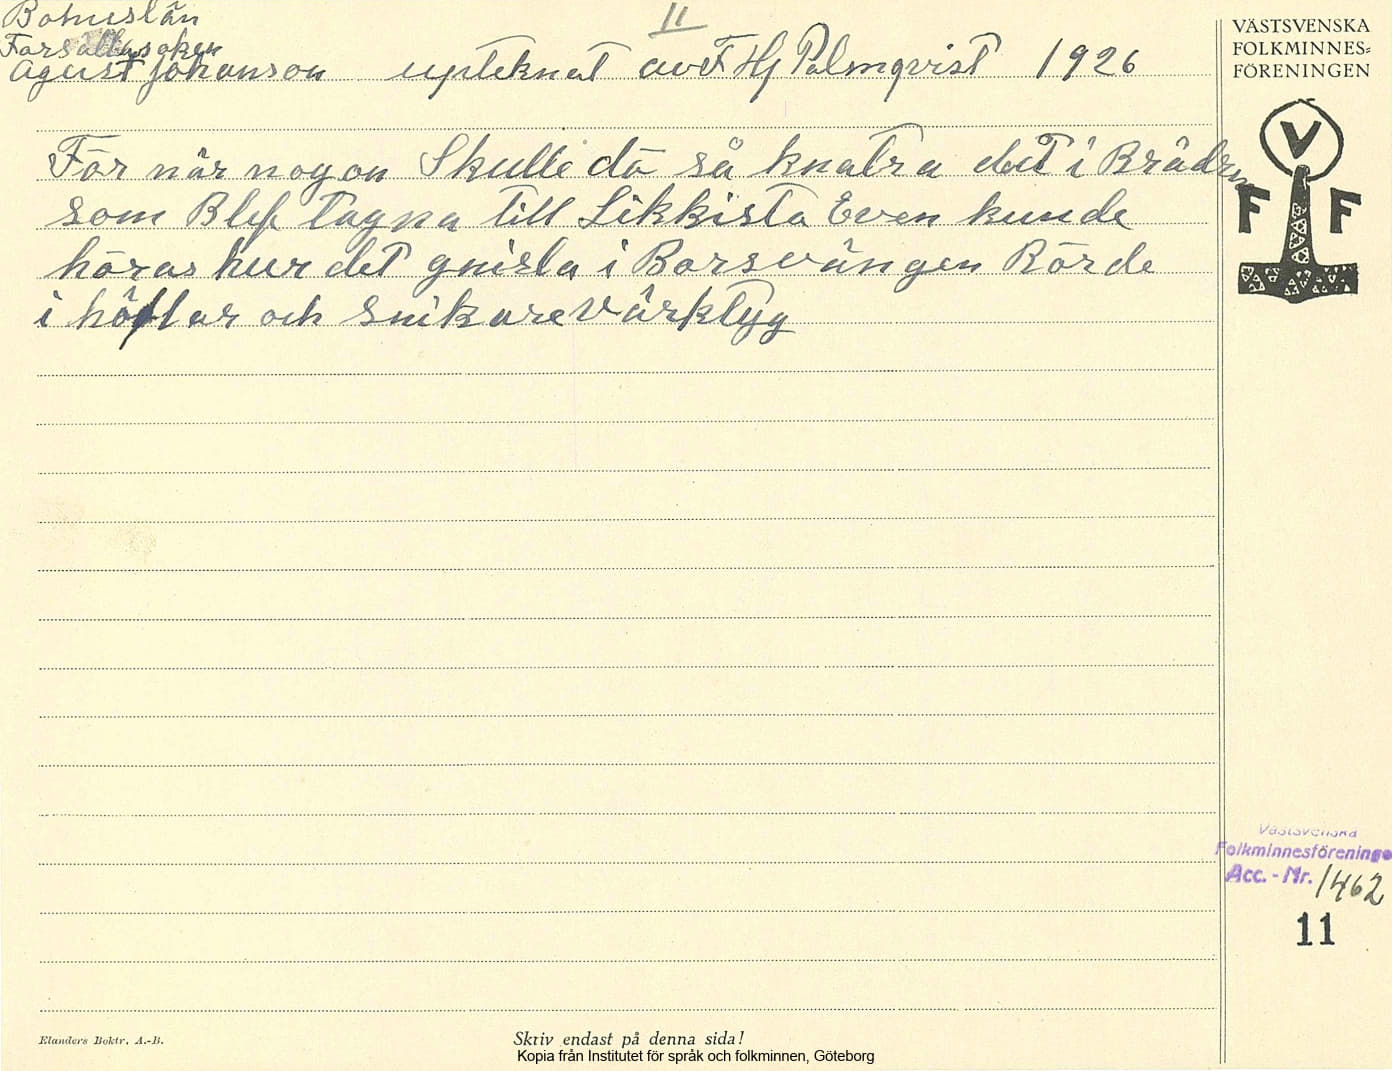 Bohuslän
11
Forsälla soken
Agust Johanson upteknat av F Hj Palmqvist 1926
För när nogon Skulle dö så knatra det i Brädren
som Blef tagna till Likkista Even kunde
höras hur det gnisla i Borsvängen Rörde
i höflar och snikare värktyg
VÄSTSVENSKA
FOLKMINNES=
FÖRENINGEN
V
F F
Västsvenska
Folkminnesföreninge
Acc. - Nr. 1462
11
Elanders Boktr. A.-B.
Skriv endast på denna sida!
Kopia från Institutet för språk och folkminnen, Göteborg